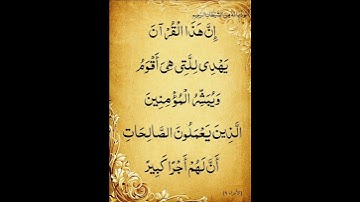 إِنَّ هَذَا الْقُرْآنَ
يَهْدِى لِلَّتِى هِىَ أَقْوَمُ
وَيُبَشِّرُ الْمُؤْمِنِينَ
الَّذِينَ يَعْمَلُونَ الصَّالِحَاتِ
أَنَّ لَهُمْ أَجْرًا كَبِيرًا